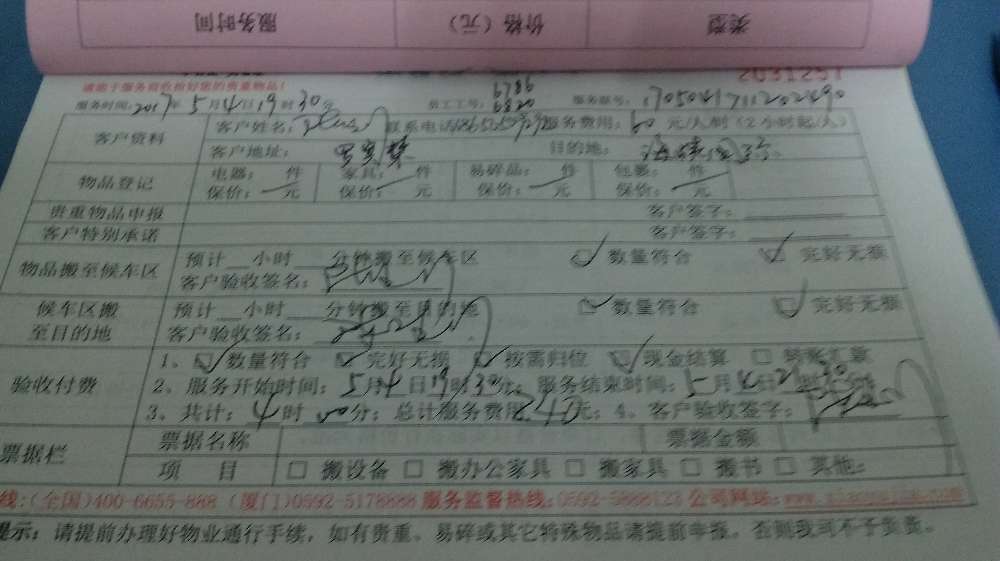 服务时间 价格（元） 类型
2031251
请给于服务前收拾好您的贵重物品！
6786
服务时间：2017年5月4日19时30分 员工工号：6820 服务账号：1705041711202490
客户资料 客户姓名： 联系电话 服务费用：60元/人/时（2小时起/人）
客户地址： 目的地：
物品登记 电器： 件 家具： 件 易碎品： 件 包裹： 件
保价： 元 保价： 元 保价： 元 保价： 元
贵重物品申报 客户签字：
客户特别承诺 客户签字：
物品搬至候车区 预计 小时 分钟搬至候车区 数量符合 完好无损
客户验收签名：
候车区搬至目的地 预计 小时 分钟搬至目的地 数量符合 完好无损
客户验收签名：
验收付费 1、数量符合 完好无损 按需归位 现金结算 转账汇款
2、服务开始时间：5月4日19时30分；服务结束时间：5月4日21时30分
3、共计：4时00分；总计服务费用240元；4、客户验收签字：
票据栏 票据名称 票据金额
项 目 搬设备 搬办公家具 搬家具 搬书 其他：
线：(全国)400-6655-888 (厦门)0592-5178888 服务监督热线：0592-5888123 公司网站：
提示：请提前办理好物业通行手续，如有贵重、易碎或其它特殊物品请提前申报，否则我司不予负责。